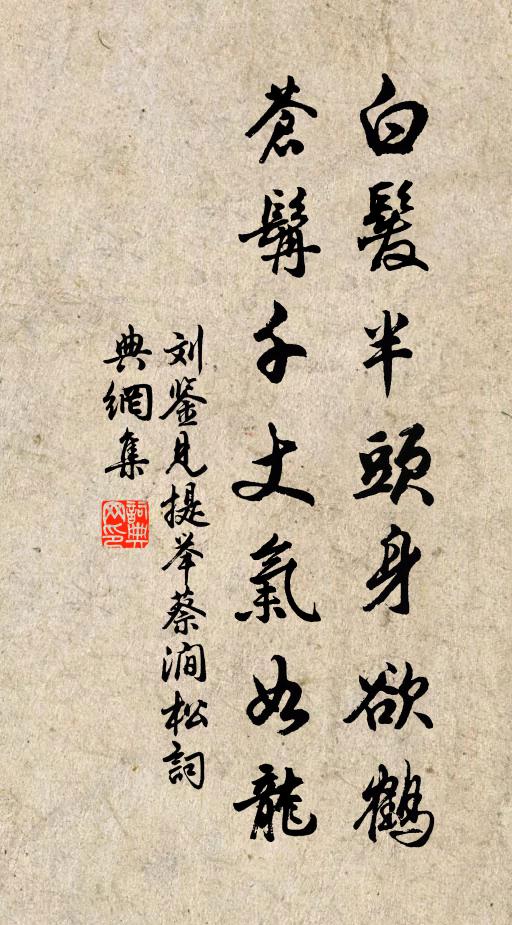 白髮半頭身欲鶴
蒼髯千丈氣如龍
刘鉴見提举蔡澗松詞
典網集
詞典网印